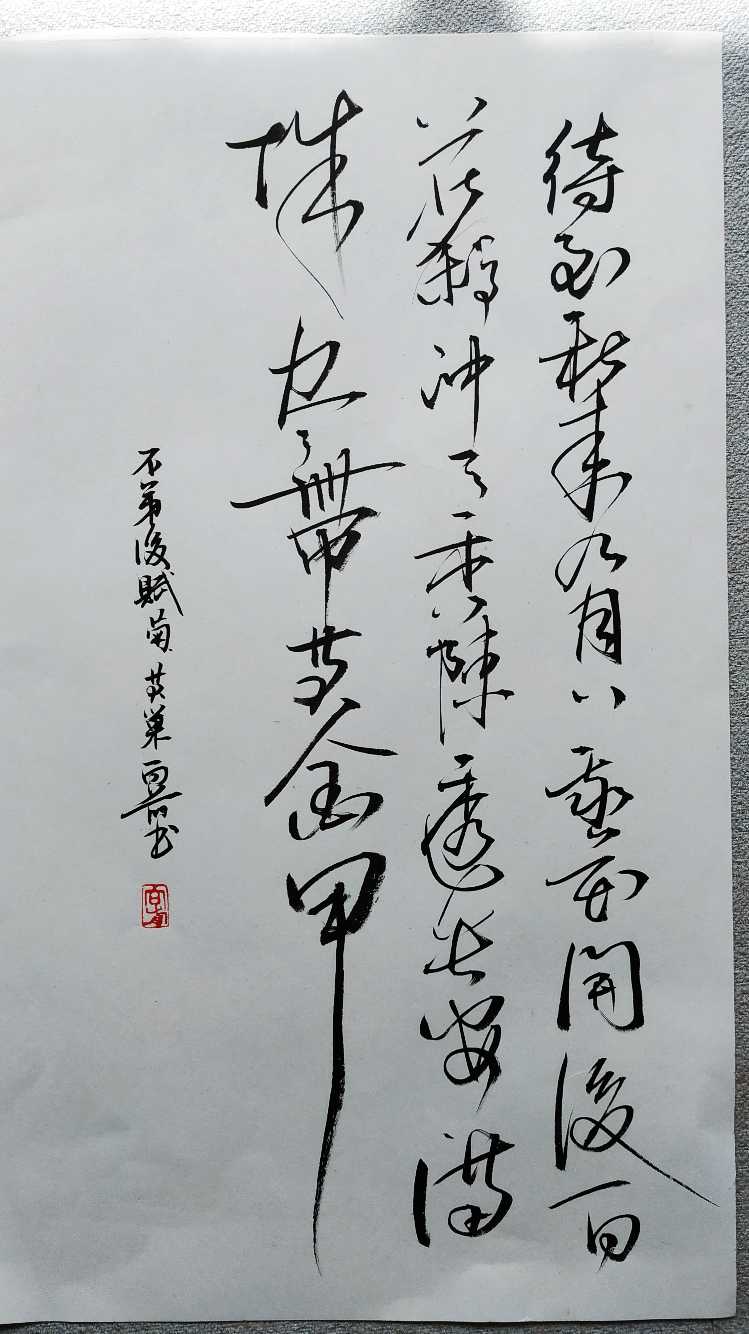 待到秋来九月八我花开後百
花殺冲天香陣透长安满
城尽带黄金甲
不第後賦菊黄巢